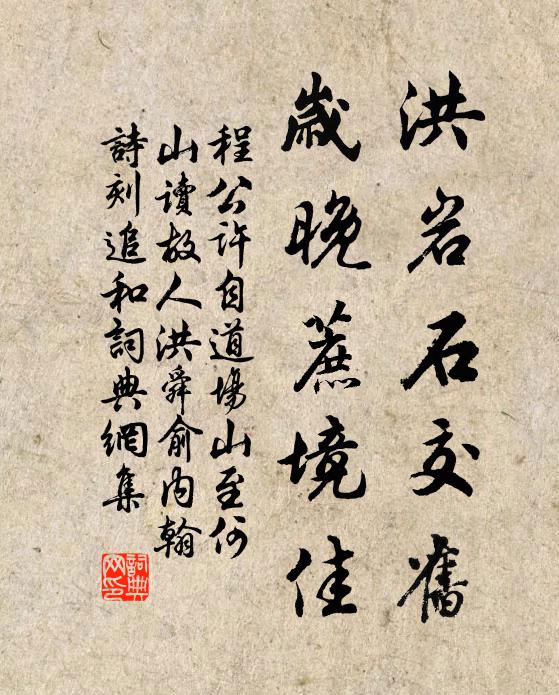 洪岩石交舊
歲晚蔗境佳
程公許自道場山至何
山讀故人洪舜俞內翰
詩刻追和詞典網集
詞典网印